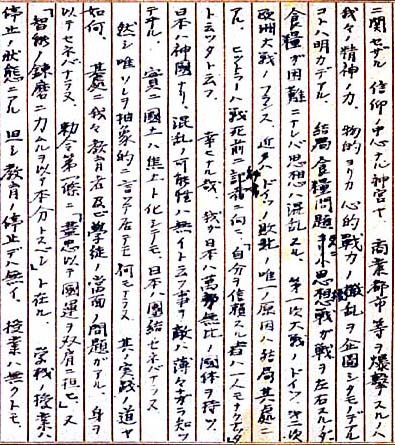 ニ関セザル 信仰ノ中心タル神宮ヤ、商業都市等ヲ爆撃スル、ハ
我々精神ノ力、物的ヨリカ心的戦力ノ撹乱ヲ企図シタモノデアル
コハ明カデアル。結局食糧問題 思想戦が戦ヲ左右スルノデ
食糧が困難ニナレバ思想ハ混乱スル 第一次大戦ノドイツ、第二次
欧洲大戦ノフランス 近クハドイツノ敗北ノ唯一ノ原因ハ結局其處ニ
アル。ヒットラーハ戦死前ニ 記者ニ向ヒ「自分ヲ信頼スル者ハ一人モナクナッタ」
ト云フタト云フ 幸ナル哉、我が日本ハ萬邦無比ノ國体ヲ持ツ、
日本ハ神國ナリ、混乱ノ可能性ハ無イト云フ事ヲ敵ハ薄々ナガラ知ッ
テヰル 實ニ國土ハ焦土ト化シテモ、日本ハ團結セネバナラヌ
然シ唯ソレヲ抽象的ニ言ッテ居テモ何モナラヌ 其ノ実践ノ道ヤ
如何、 其處ニ我々教育者及ビ學徒ノ當面ノ問題ガアル、身ヲ
以テセネバナラヌ 勅令第一條ニ「盡忠以テ國運ヲ双肩ニ担ヒ」又
「智能ノ錬磨ニ力ムルヲ以テ本分トスベシ」ト在ル、 学校ノ授業ハ
停止ノ状態ニアル 但シ教育ノ停止デハ無イ、授業ハ無クトモ、